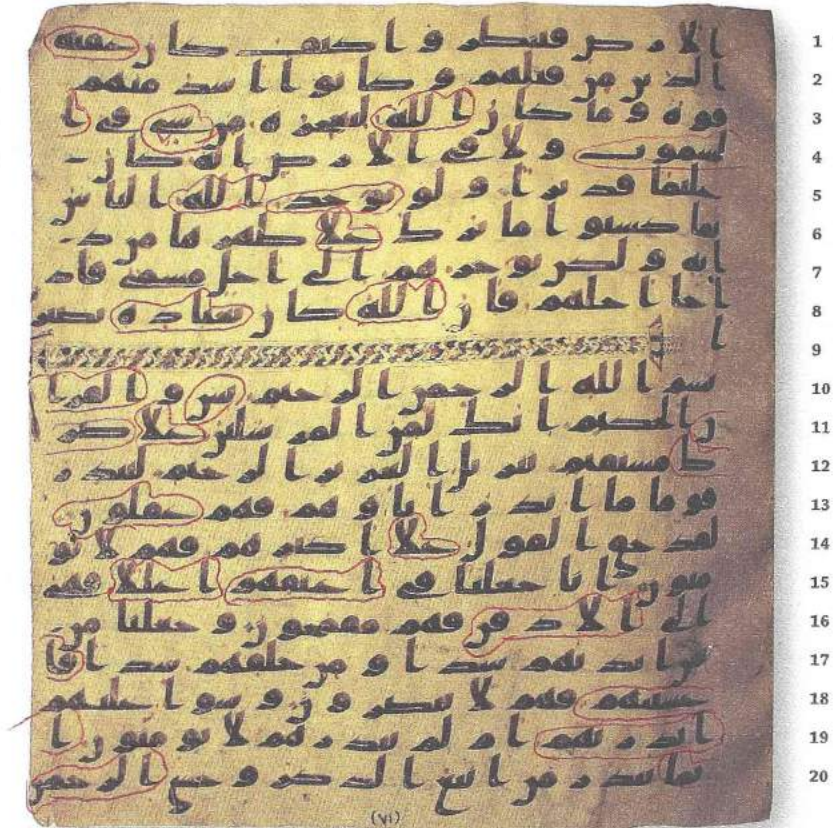 الارض فينظروا كيف كان عقبه
الذين من قبلهم وكانوا اشد منهم
قوه وما كان الله ليعجزه من شي في ا
لسموت ولا في الارض انه كان
عليما قديرا ولو يوخذ الله الناس
بما كسبوا ما ترك علا ظهرها من د
ابه ولكن يوخرهم الى اجل مسمى فاذ
ا جا اجلهم فان الله كان بعباده بصير
ا
بسم الله الرحمن الرحيم يس والقرا
ن الحكيم انك لمن المرسلين علا صر
ط مستقيم تنزيل العزيز الرحيم لتنذر
قوما ما انذر اباوهم فهم غفلون
لقد حق القول علا اكثرهم فهم لا يو
منون انا جعلنا في اعنقهم اغللا فهي
الى الاذقن فهم مقمحون وجعلنا من
بين ايديهم سدا ومن خلفهم سدا فا
غشينهم فهم لا يبصرون وسوا عليهم
انذرتهم ام لم تنذرهم لا يومنون ا
نما تنذر من اتبع الذكر وخشي الرحمن
(٧١)
1
2
3
4
5
6
7
8
9
10
11
12
13
14
15
16
17
18
19
20